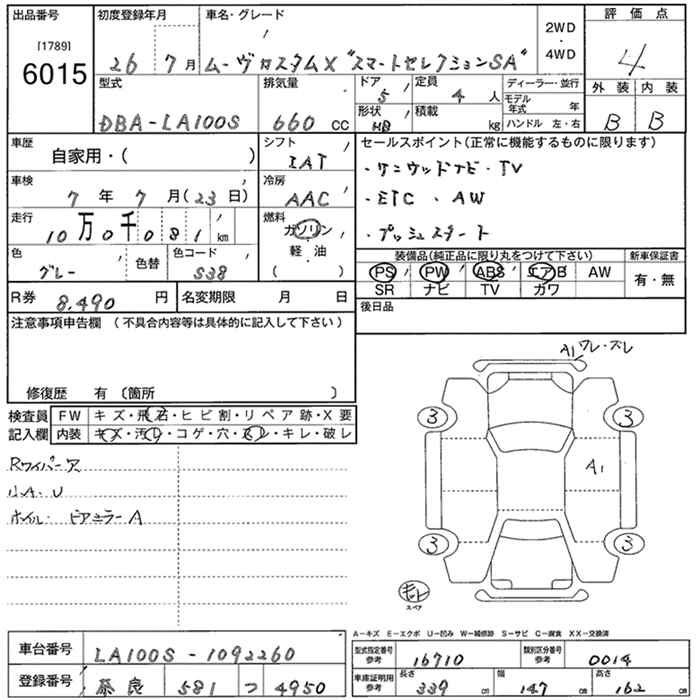 出品番号 初度登録年月 車名・グレード 2WD・4WD 評価点
[1789]
6015 26 7月 ムーヴカスタムX "スマートセレクションSA" 4
型式 排気量 ドア 5 定員 4人 ディーラー・並行 外装 内装
DBA-LA100S 660 cc 形状 HB 積載 kg モデル年式 年 ハンドル 左・右 B B
車歴 自家用・( ) シフト IAT セールスポイント(正常に機能するものに限ります)
・ケンウッドナビ・TV
車検 7年7月(23日) 冷房 AAC ・ETC ・AW
走行 10万0千081km 燃料 ガソリン・軽・油 ( ) ・プッシュスタート
色 グレー 色替 色コード S38 装備品(純正品に限り丸をつけて下さい) 新車保証書
PS PW ABS エアB AW 有・無
SR ナビ TV カワ
R券 8,490円 名変期限 月 日 後日品
注意事項申告欄 (不具合内容等は具体的に記入して下さい)
修復歴 有 (箇所 )
検査員 FW キズ・飛石・ヒビ割・リペア跡・X要
記入欄 内装 キズ・汚レ・コゲ・穴・スレ・キレ・破レ
Rワイパーア
小A・U
ホイル・ドアミラーA
A1 ワレ・ズレ
3 3
A1
3 3
スペア
A-キズ E-エクボ U-凹み W-補修跡 S-サビ C-腐食 XX-交換済
車台番号 LA100S-1092260 型式指定番号 参考 16710 類別区分番号 参考 0014
登録番号 奈良 581 つ 4950 車庫証明用 参考 長さ 339cm 幅 147cm 高さ 162cm